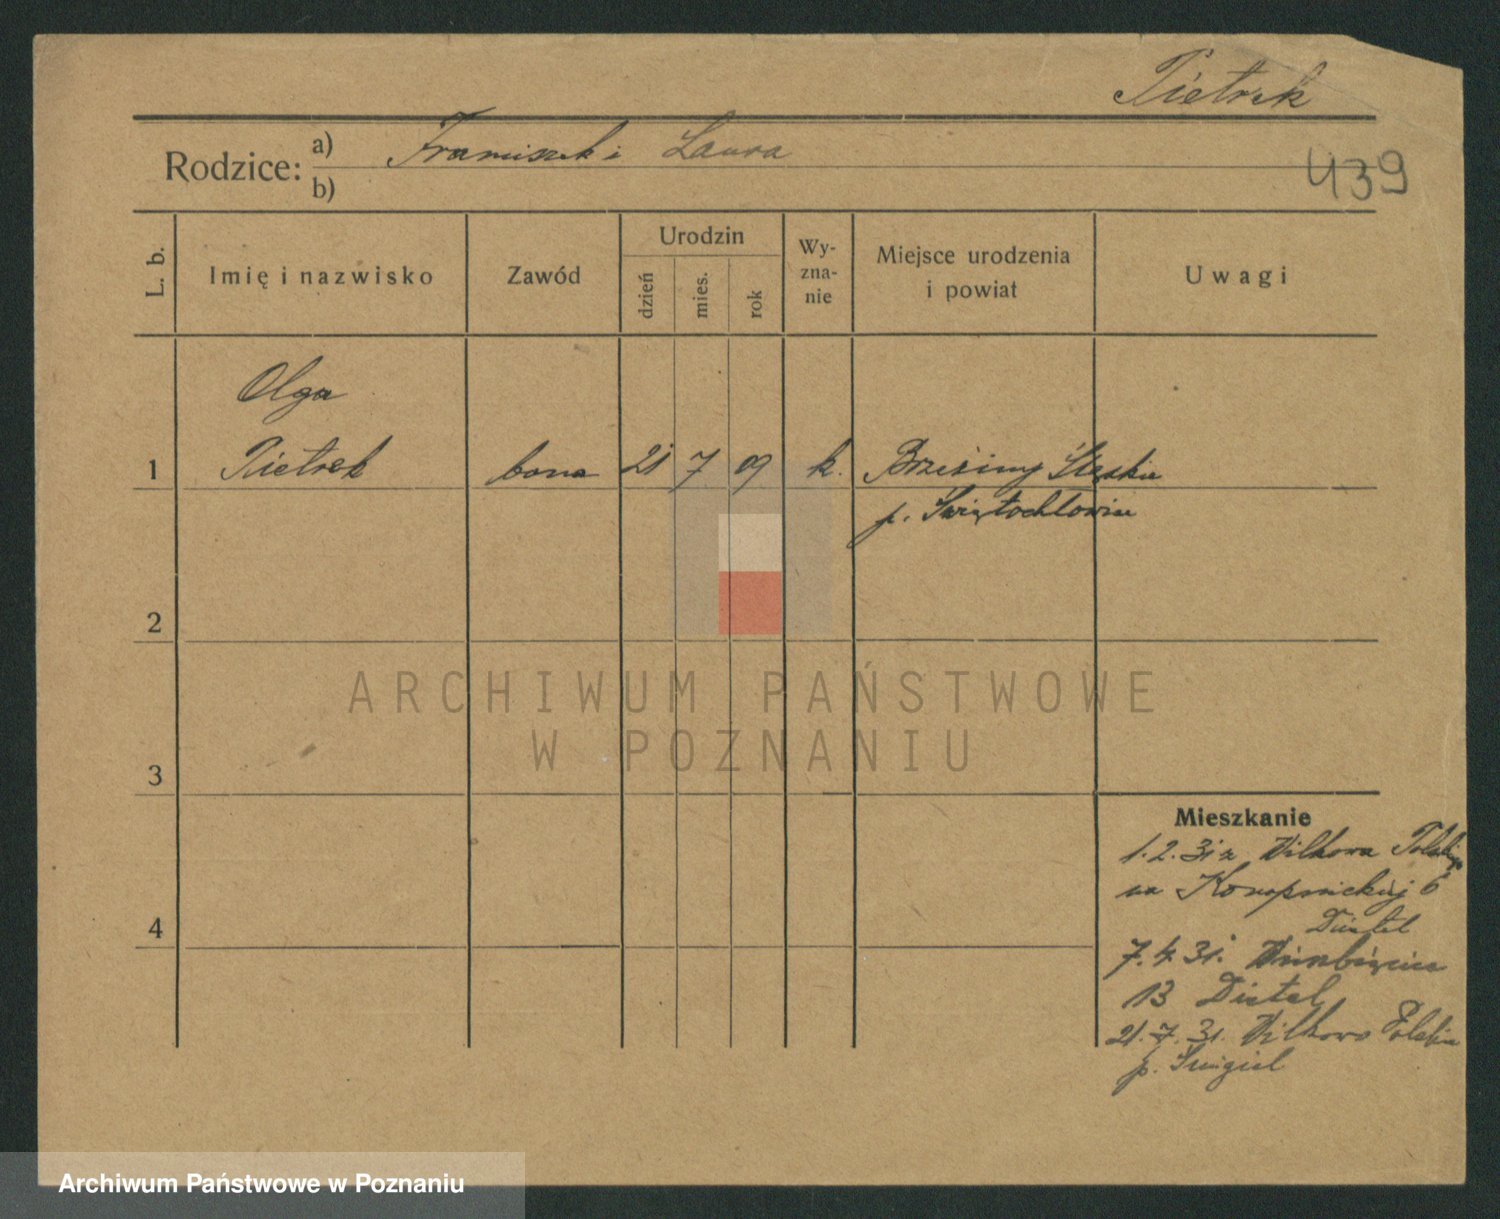 Pietrek
Rodzice: a) Franciszek i Laura
b)
439
L. b.
Imię i nazwisko
Zawód
Urodzin
dzień
mies.
rok
Wy-
zna-
nie
Miejsce urodzenia
i powiat
Uwagi
Olga
1 Pietrek bona 21 7 09 k. Brzeziny Śląskie
p. Świętochłowice
2
ARCHIWUM PAŃSTWOWE
W POZNANIU
3
Mieszkanie
1.2.31 z Wilkowa Polskiego
na Konopnickiej 6
Distel
4
7.4.31. Wierzbięcice
13 Distel
21.7.31. Wilkowo Polskie
p. Śmigiel
Archiwum Państwowe w Poznaniu